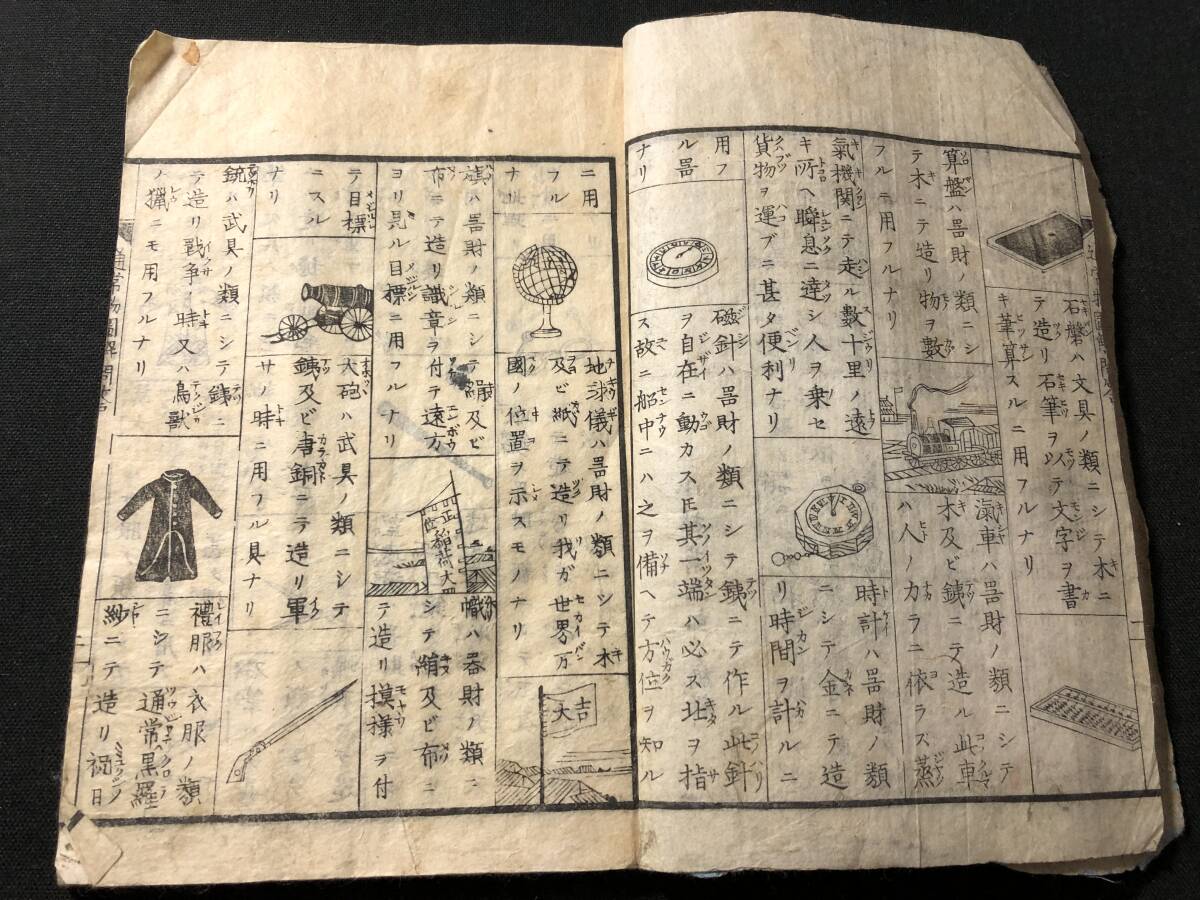 石盤ハ文具ノ類ニシテ木ニ
テ造リ石筆ヲ以テ文字ヲ書
キ筆算スルニ用フルナリ
算盤ハ噐財ノ類ニシ
テ木ニテ造リ物ヲ數
フルニ用フルナリ
滊車ハ噐財ノ類ニシテ
木及ビ銕ニテ造ル此車
ハ人ノ力ラニ依ラス蒸
氣機関ニテ走ル数十里ノ遠
キ所ヘ瞬息ニ達シ人ヲ乗セ
貨物ヲ運ブニ甚タ便利ナリ
時計ハ噐財ノ類
ニシテ金ニテ造
リ時間ヲ計ルニ
用フ
ル噐
ナリ
磁針ハ噐財ノ類ニシテ銕ニテ作ル此針
ヲ自在ニ動カス𪜈其一端ハ必ス北ヲ指
ス故ニ船中ニハ之ヲ備ヘテ方位ヲ知ル
ニ用
フル
ナ
地球儀ハ噐財ノ類ニシテ木
及ビ紙ニテ造リ我ガ世界万
國ノ位置ヲ示スモノナリ
大吉
旗ハ噐財ノ類ニシテ絹及ビ
布ニテ造リ識章ヲ付テ遠方
ヨリ見ル目標ニ用フルナリ
正一位稲荷大明
幟ハ噐財ノ類ニ
シテ絹及ビ布ニ
テ造リ摸様ヲ付
テ目標
ニスル
ナリ
大砲ハ武具ノ類ニシテ
銕及ビ唐銅ニテ造リ軍
サノ時ニ用フル具ナリ
銃ハ武具ノ類ニシテ銕ニ
テ造リ戦争ノ時又ハ鳥獣
ノ猟ニモ用フルナリ
禮服ハ衣服ノ類
ニシテ通常ハ黒羅
紗ニテ造リ祝日